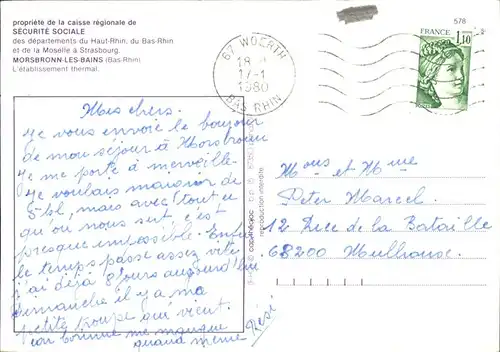 propriété de la caisse régionale de
SÉCURITÉ SOCIALE
des départements du Haut-Rhin, du Bas-Rhin
et de la Moselle à Strasbourg.
MORSBRONN-LES-BAINS (Bas-Rhin)
L'établissement thermal.
67 WOERTH
18 H
17-1
1980
BAS RHIN
578
FRANCE
1,10
POSTES
Mes chers.
Je vous envoie le bonjour
de mon séjour à Morsbronn
Je me porte à merveille.
Je voulais maigrir de
5 kl, mais avec tout ce
qu'on nous sert c'est
presque impossible. Enfin
le temps passe assez vite
j'ai déjà 8 jours aujourd'hui
dimanche il y a ma
petite troupe qui vient.
car bonne me manque
quand même
Rési
reproduction interdite
Mons et Mme
Peter Marcel
12 Rue de la Bataille
68200 Mulhouse